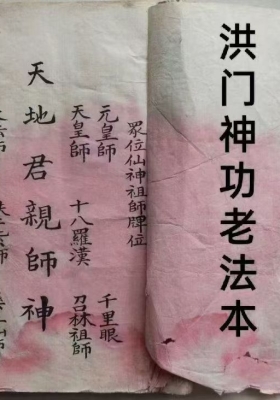 洪门神功老法本
眾位仙神祖師牌位
元皇師 千里眼
天皇師 十八羅漢 召林祖師
天地君親師神